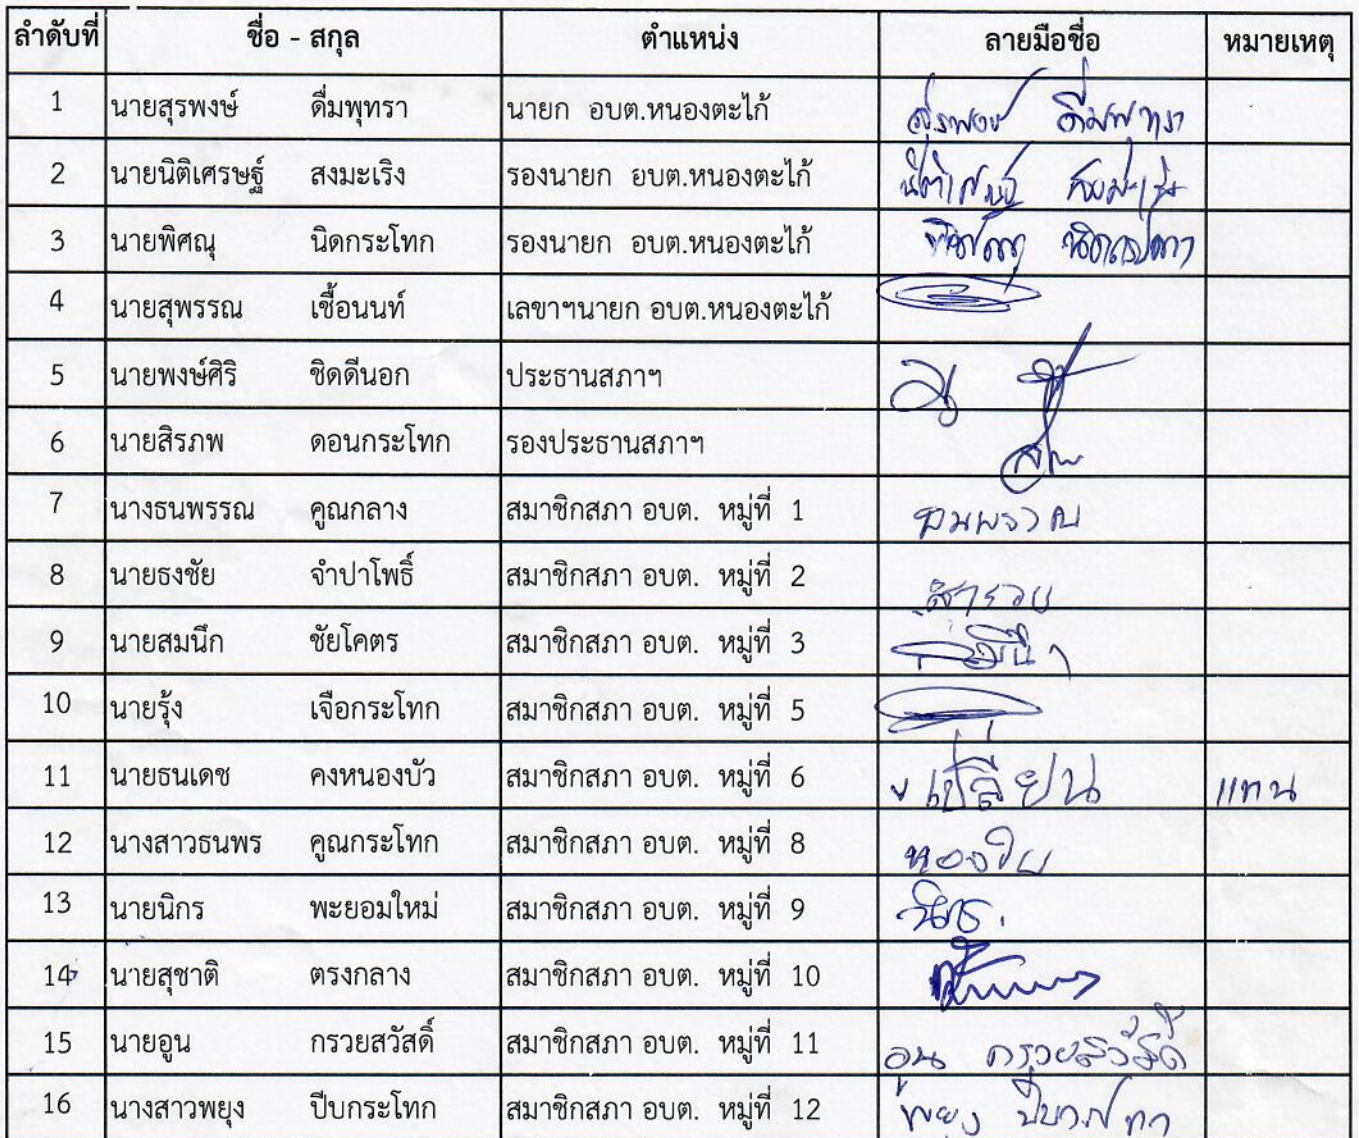 ลำดับที่ ชื่อ - สกุล ตำแหน่ง ลายมือชื่อ หมายเหตุ
1 นายสุรพงษ์ ดื่มพุทรา นายก อบต.หนองตะไก้ สุรพงษ์ ดื่มพุทรา
2 นายนิติเศรษฐ์ สงมะเริง รองนายก อบต.หนองตะไก้
3 นายพิศณุ นิดกระโทก รองนายก อบต.หนองตะไก้
4 นายสุพรรณ เชื้อนนท์ เลขาฯนายก อบต.หนองตะไก้
5 นายพงษ์ศิริ ชิดดีนอก ประธานสภาฯ
6 นายสิรภพ ดอนกระโทก รองประธานสภาฯ
7 นางธนพรรณ คูณกลาง สมาชิกสภา อบต. หมู่ที่ 1 ธนพรรณ
8 นายธงชัย จำปาโพธิ์ สมาชิกสภา อบต. หมู่ที่ 2
9 นายสมนึก ชัยโคตร สมาชิกสภา อบต. หมู่ที่ 3
10 นายรุ้ง เจือกระโทก สมาชิกสภา อบต. หมู่ที่ 5
11 นายธนเดช คงหนองบัว สมาชิกสภา อบต. หมู่ที่ 6 เปลี่ยน แทน
12 นางสาวธนพร คูณกระโทก สมาชิกสภา อบต. หมู่ที่ 8
13 นายนิกร พะยอมใหม่ สมาชิกสภา อบต. หมู่ที่ 9
14 นายสุชาติ ตรงกลาง สมาชิกสภา อบต. หมู่ที่ 10
15 นายอูน กรวยสวัสดิ์ สมาชิกสภา อบต. หมู่ที่ 11 อูน กรวยสวัสดิ์
16 นางสาวพยุง ปีบกระโทก สมาชิกสภา อบต. หมู่ที่ 12 พยุง ปีบกระโทก